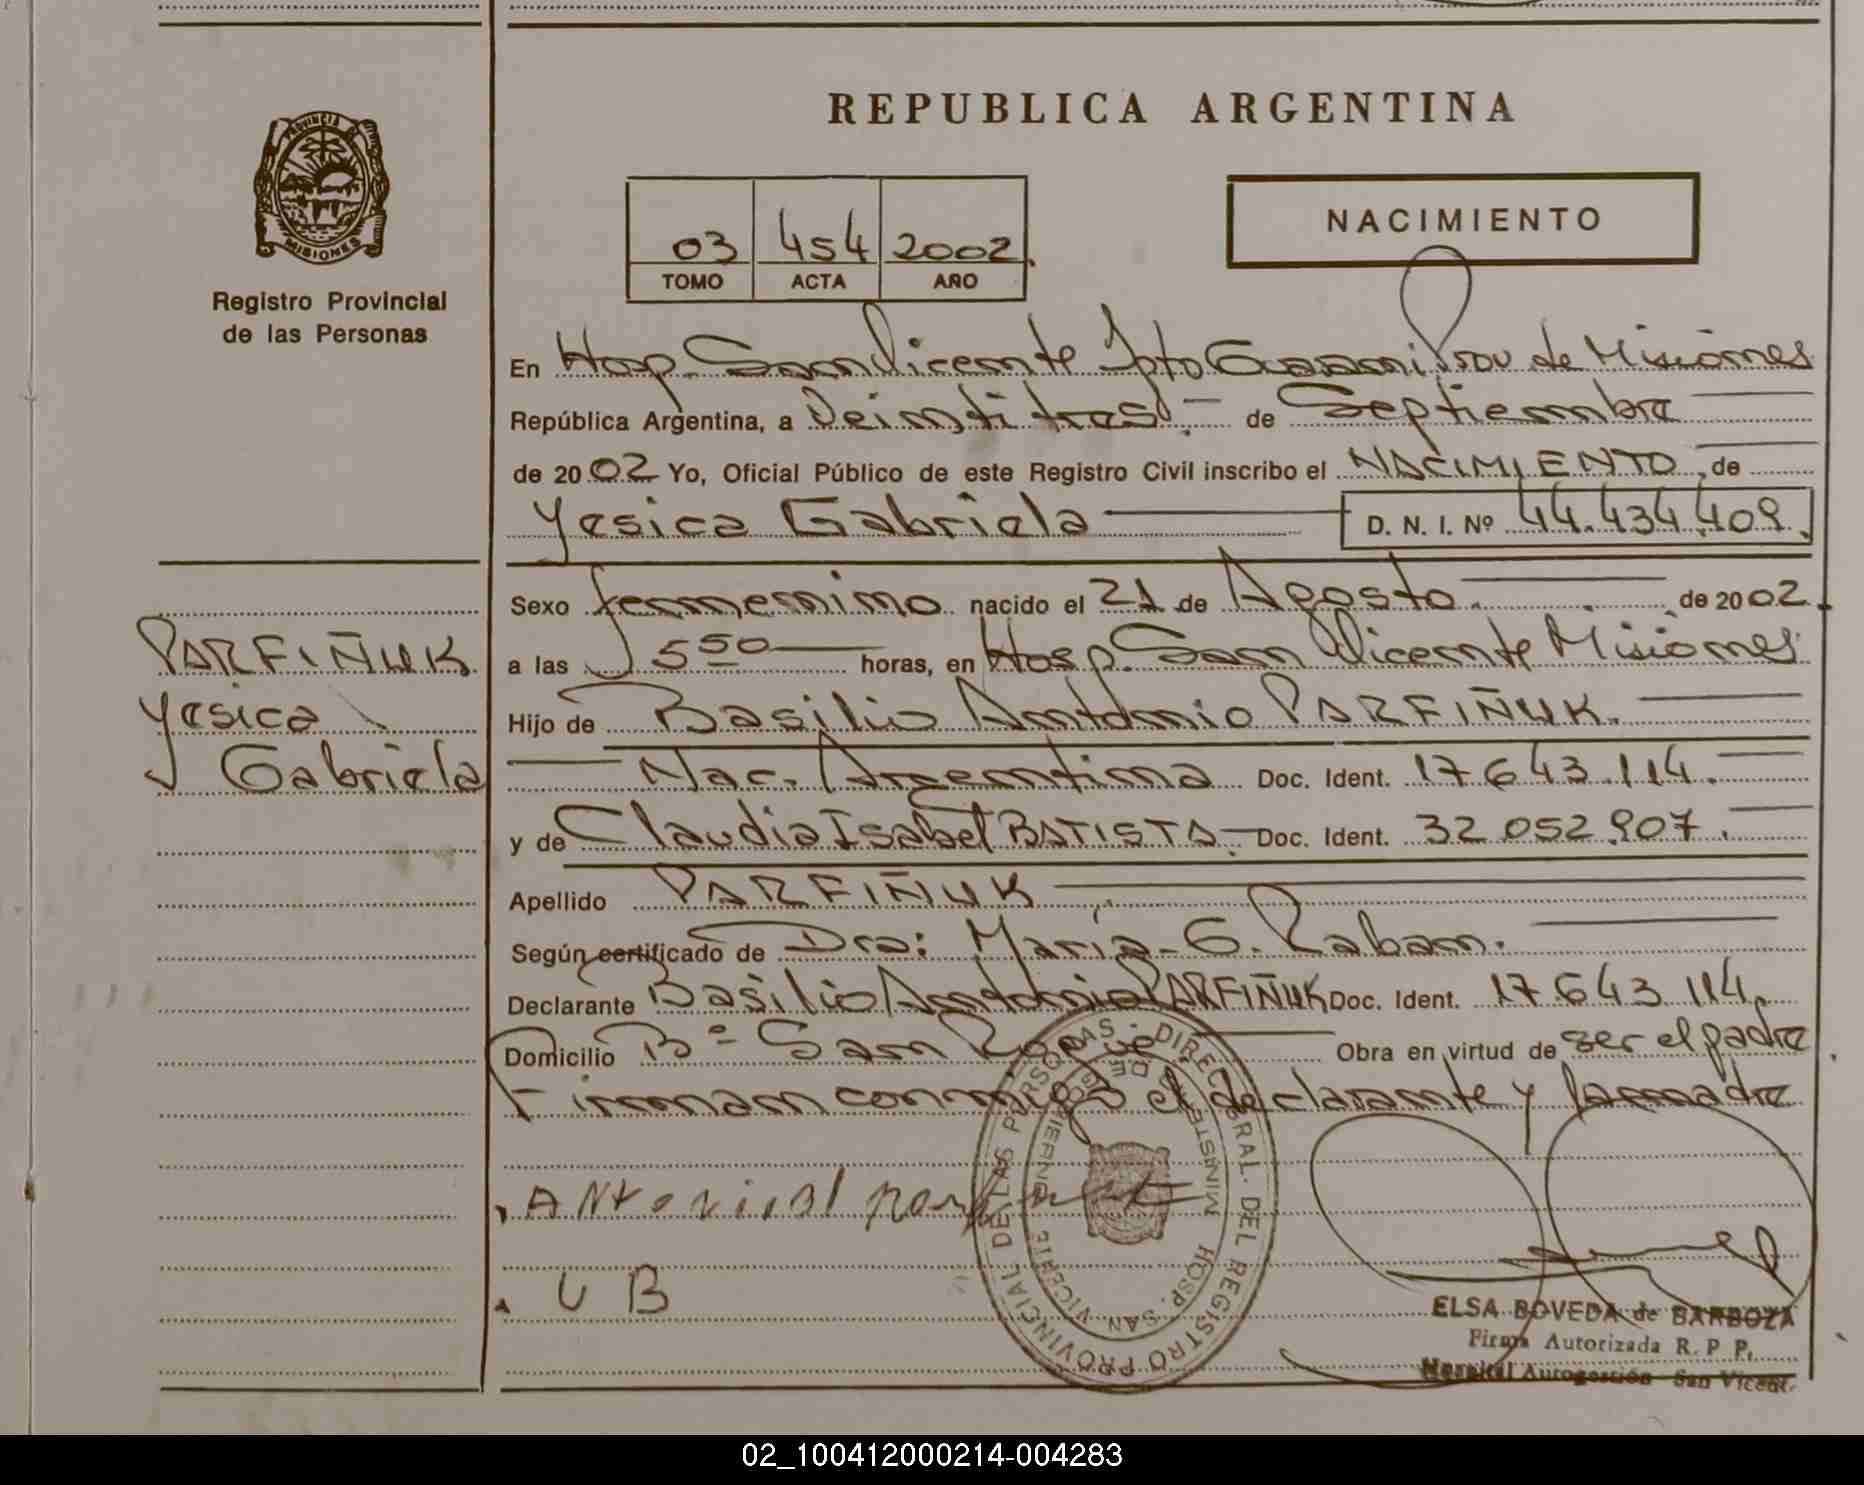 PROVINCIA DE
MISIONES
Registro Provincial
de las Personas
PARFIÑUK
Yesica
Gabriela
REPUBLICA ARGENTINA
03 454 2002
TOMO ACTA AÑO
NACIMIENTO
En Hosp. San Vicente Dpto Guarani Prov de Misiones
República Argentina, a Veintitres de Septiembre
de 2002 Yo, Oficial Público de este Registro Civil inscribo el NACIMIENTO de
Yesica Gabriela D. N. I. Nº 44.434.409
Sexo femenino nacido el 21 de Agosto de 2002
a las 5 50 horas, en Hosp. San Vicente Misiones
Hijo de Basilio Antonio PARFIÑUK
Nac. Argentina Doc. Ident. 17.643.114.
y de Claudia Isabel BATISTA Doc. Ident. 32.052.907.
Apellido PARFIÑUK
Según certificado de Dra: Maria G. Raban.
Declarante Basilio Antonio PARFIÑUK Doc. Ident. 17.643.114.
Domicilio Bº San Roque Obra en virtud de ser el padre
Firman conmigo el declarante y la madre
DIREC. GRAL. DEL REGISTRO PROVINCIAL DE LAS PERSONAS
MINISTERIO DE GOBIERNO
HOSP. SAN VICENTE
U B
ELSA BOVEDA de BARBOZA
Firma Autorizada R. P. P.
Hospital Autogestión San Vicente
02_100412000214-004283